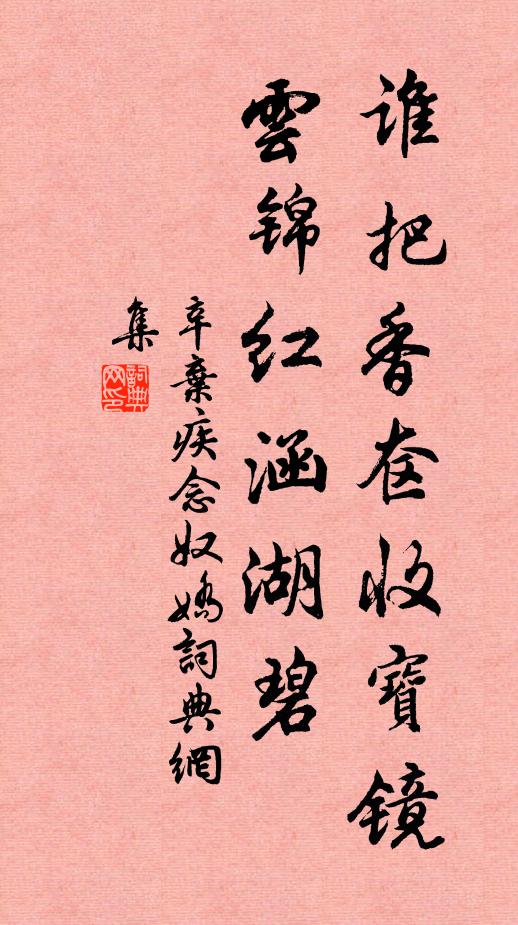 谁把香奁收寶镜
雲锦红涵湖碧
辛棄疾念奴嬌詞典網
集
詞典网印